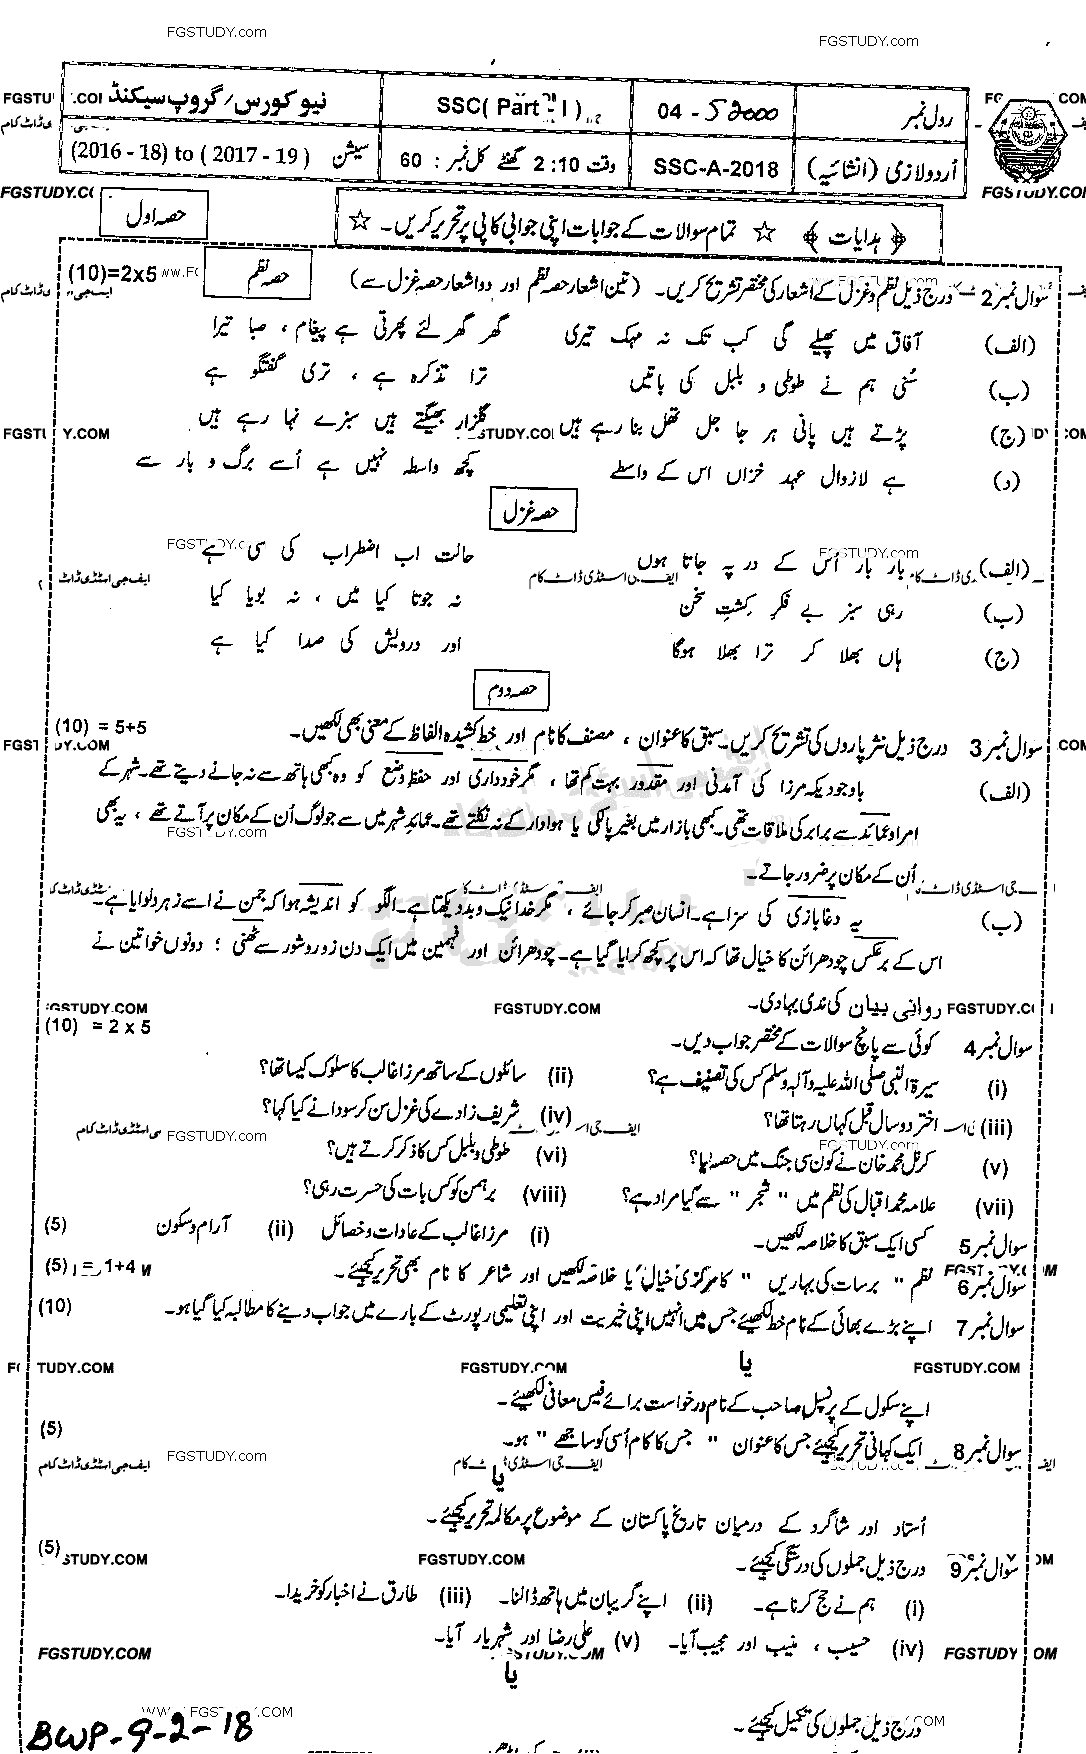 FGSTUDY.com
FGSTUDY.com
رول نمبر 04 - 52000 SSC( Part - I ) نیو کورس/ گروپ سیکنڈ
اُردو لازمی (انشائیہ) SSC-A-2018 وقت 2:10 گھنٹے کل نمبر : 60 سیشن (2016 - 18) to ( 2017 - 19 )
FGSTUDY.COM
﴿ ہدایات ﴾ ☆ تمام سوالات کے جوابات اپنی جوابی کاپی پر تحریر کریں۔ ☆
حصہ اول
سوال نمبر 2 درج ذیل نظم و غزل کے اشعار کی مختصر تشریح کریں۔ (تین اشعار حصہ نظم اور دو اشعار حصہ غزل سے) حصہ نظم (10)=2x5
(الف) آفاق میں پھیلے گی کب تک نہ مہک تیری گھر گھر لئے پھرتی ہے پیغام ، صبا تیرا
(ب) سُنی ہم نے طوطی و بلبل کی باتیں ترا تذکرہ ہے ، تری گفتگو ہے
(ج) پڑتے ہیں پانی ہر جا جل تھل بنا رہے ہیں گلزار بھیگتے ہیں سبزے نہا رہے ہیں
(د) ہے لازوال عہدِ خزاں اس کے واسطے کچھ واسطہ نہیں ہے اُسے برگ و بار سے
حصہ غزل
(الف) بار بار اُس کے در پہ جاتا ہوں حالت اب اضطراب کی سی ہے
(ب) رہی سبز بے فکر کِشتِ سخن نہ جوتا کیا میں ، نہ بویا کیا
(ج) ہاں بھلا کر ترا بھلا ہوگا اور درویش کی صدا کیا ہے
حصہ دوم
سوال نمبر 3 درج ذیل نثر پاروں کی تشریح کریں۔ سبق کا عنوان ، مصنف کا نام اور خط کشیدہ الفاظ کے معنی بھی لکھیں۔ (10) = 5+5
(الف) باوجودیکہ مرزا کی آمدنی اور مقدور بہت کم تھا ، مگر خودداری اور حفظِ وضع کو وہ کبھی ہاتھ سے نہ جانے دیتے تھے۔ شہر کے
امرا و عمائد سے برابر کی ملاقات تھی۔ کبھی بازار میں بغیر پالکی یا ہوادار کے نہ نکلتے تھے۔ عمائدِ شہر میں سے جو لوگ اُن کے مکان پر آتے تھے ، یہ بھی
اُن کے مکان پر ضرور جاتے۔
(ب) یہ دغابازی کی سزا ہے۔ انسان صبر کر جائے ، مگر خدا نیک و بد دیکھتا ہے۔ الگو کو اندیشہ ہوا کہ جمن نے اسے زہر دلوایا ہے۔
اس کے برعکس چودھرائن کا خیال تھا کہ اس پر کچھ کرایا گیا ہے۔ چودھرائن اور فہیمن میں ایک دن زور و شور سے ٹھنی ؛ دونوں خواتین نے
روانی بیان کی ندی بہا دی۔
FGSTUDY.COM FGSTUDY.COM
سوال نمبر 4 کوئی سے پانچ سوالات کے مختصر جواب دیں۔ (10) = 2 x 5
(i) سیرۃ النبی صلی اللہ علیہ وآلہ وسلم کس کی تصنیف ہے؟ (ii) سائلوں کے ساتھ مرزا غالب کا سلوک کیسا تھا؟
(iii) اختر دو سال قبل کہاں رہتا تھا؟ (iv) شریف زادے کی غزل سن کر سودا نے کیا کہا؟
(v) کرنل محمد خان نے کون سی جنگ میں حصہ لیا؟ (vi) طوطی و بلبل کس کا ذکر کرتے ہیں؟
(vii) علامہ محمد اقبال کی نظم میں " شجر " سے کیا مراد ہے؟ (viii) برہمن کو کس بات کی حسرت رہی؟
سوال نمبر 5 کسی ایک سبق کا خلاصہ لکھیں۔ (i) مرزا غالب کے عادات و خصائل (ii) آرام و سکون (5)
سوال نمبر 6 نظم " برسات کی بہاریں " کا مرکزی خیال یا خلاصہ لکھیں اور شاعر کا نام بھی تحریر کیجئے۔ (5) = 1+4
سوال نمبر 7 اپنے بڑے بھائی کے نام خط لکھیئے جس میں انہیں اپنی خیریت اور اپنی تعلیمی رپورٹ کے بارے میں جواب دینے کا مطالبہ کیا گیا ہو۔ (10)
یا
FGSTUDY.COM FGSTUDY.COM
اپنے سکول کے پرنسپل صاحب کے نام درخواست برائے فیس معافی لکھیئے۔
سوال نمبر 8 ایک کہانی تحریر کیجئے جس کا عنوان " جس کا کام اُسی کو ساجھے " ہو۔ (5)
FGSTUDY.com
یا
اُستاد اور شاگرد کے درمیان تاریخ پاکستان کے موضوع پر مکالمہ تحریر کیجئے۔
سوال نمبر 9 درج ذیل جملوں کی درستگی کیجئے۔ (5)
FGSTUDY.COM
(i) ہم نے حج کرنا ہے۔ (ii) اپنے گریبان میں ہاتھ ڈالنا۔ (iii) طارق نے اخبار کو خریدا۔
(iv) حسیب ، منیب اور مجیب آیا۔ (v) علی رضا اور شہریار آیا۔
FGSTUDY.COM
یا
درج ذیل جملوں کی تکمیل کیجئے۔
BWP-9-2-18